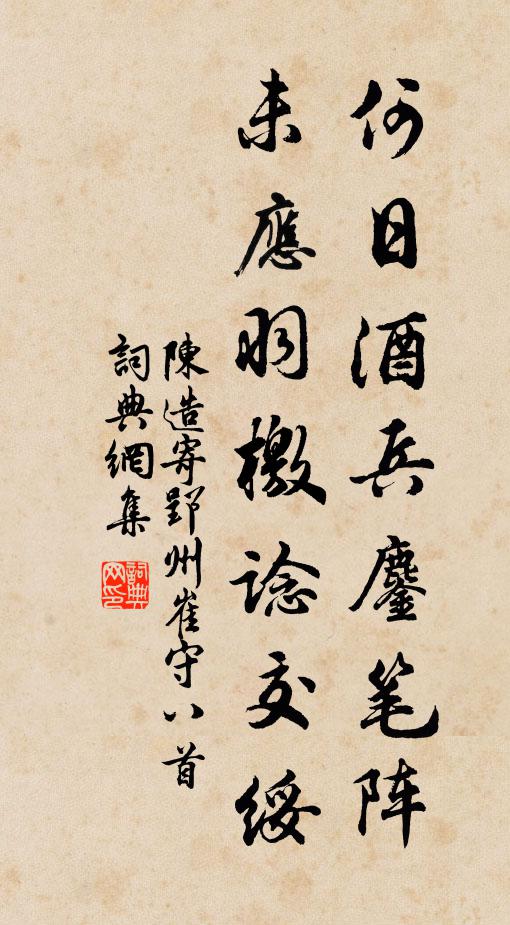 何日酒兵鏖笔阵
未應羽檄諗交綏
陳造寄郢州崔守八首
詞典網集
詞典网印